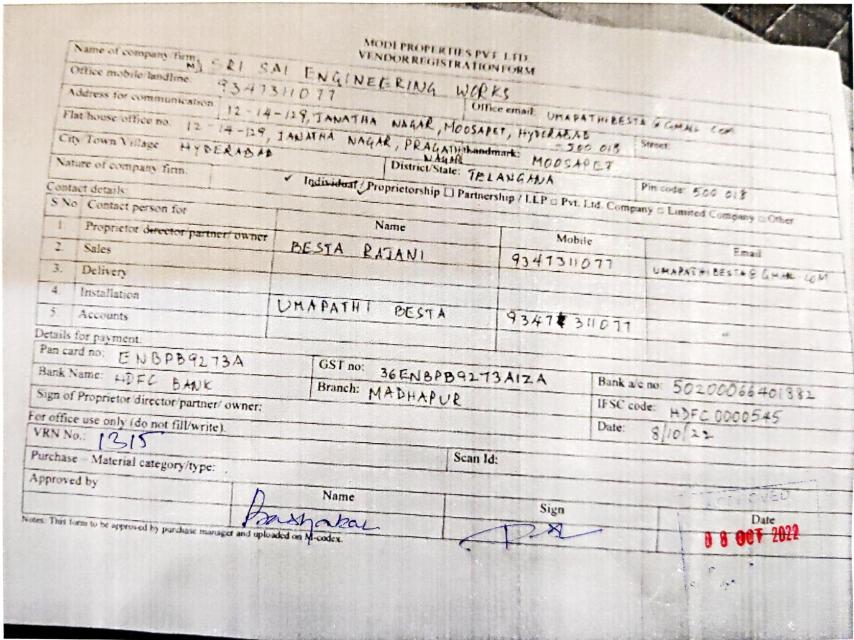 MODI PROPERTIES PVT. LTD.
VENDOR REGISTRATION FORM
Name of company firm: M/s SRI SAI ENGINEERING WORKS
Office mobile/landline: 9347311077 Office email: UMAPATHIBESTA@GMAIL COM
Address for communication 12-14-129, JANATHA NAGAR, MOOSAPET, HYDERABAD
Flat/house/office no. 12-14-129, JANATHA NAGAR, PRAGATHI NAGAR - 500 018 Street:
City/Town/Village HYDERABAD landmark: MOOSAPET
District/State: TELANGANA Pin code: 500 018
Nature of company firm: ✓ Individual / Proprietorship □ Partnership / LLP □ Pvt. Ltd. Company □ Limited Company □ Other
Contact details:
S No Contact person for Name Mobile Email
1. Proprietor director/partner/ owner BESTA RAJANI 9347311077 UMAPATHIBESTA@GMAIL COM
2. Sales
3. Delivery
4. Installation
5. Accounts UMAPATHI BESTA 9347311077
Details for payment.
Pan card no: ENBPB9273A GST no: 36ENBPB9273A1ZA Bank a/c no: 50200066401882
Bank Name: HDFC BANK Branch: MADHAPUR IFSC code: HDFC0000545
Sign of Proprietor/director/partner/ owner: Date: 8/10/22
For office use only (do not fill/write).
VRN No.: 1315
Purchase – Material category/type: Scan Id:
Approved by Name Sign Date
APPROVED
08 OCT 2022
Notes: This form to be approved by purchase manager and uploaded on M-codex.